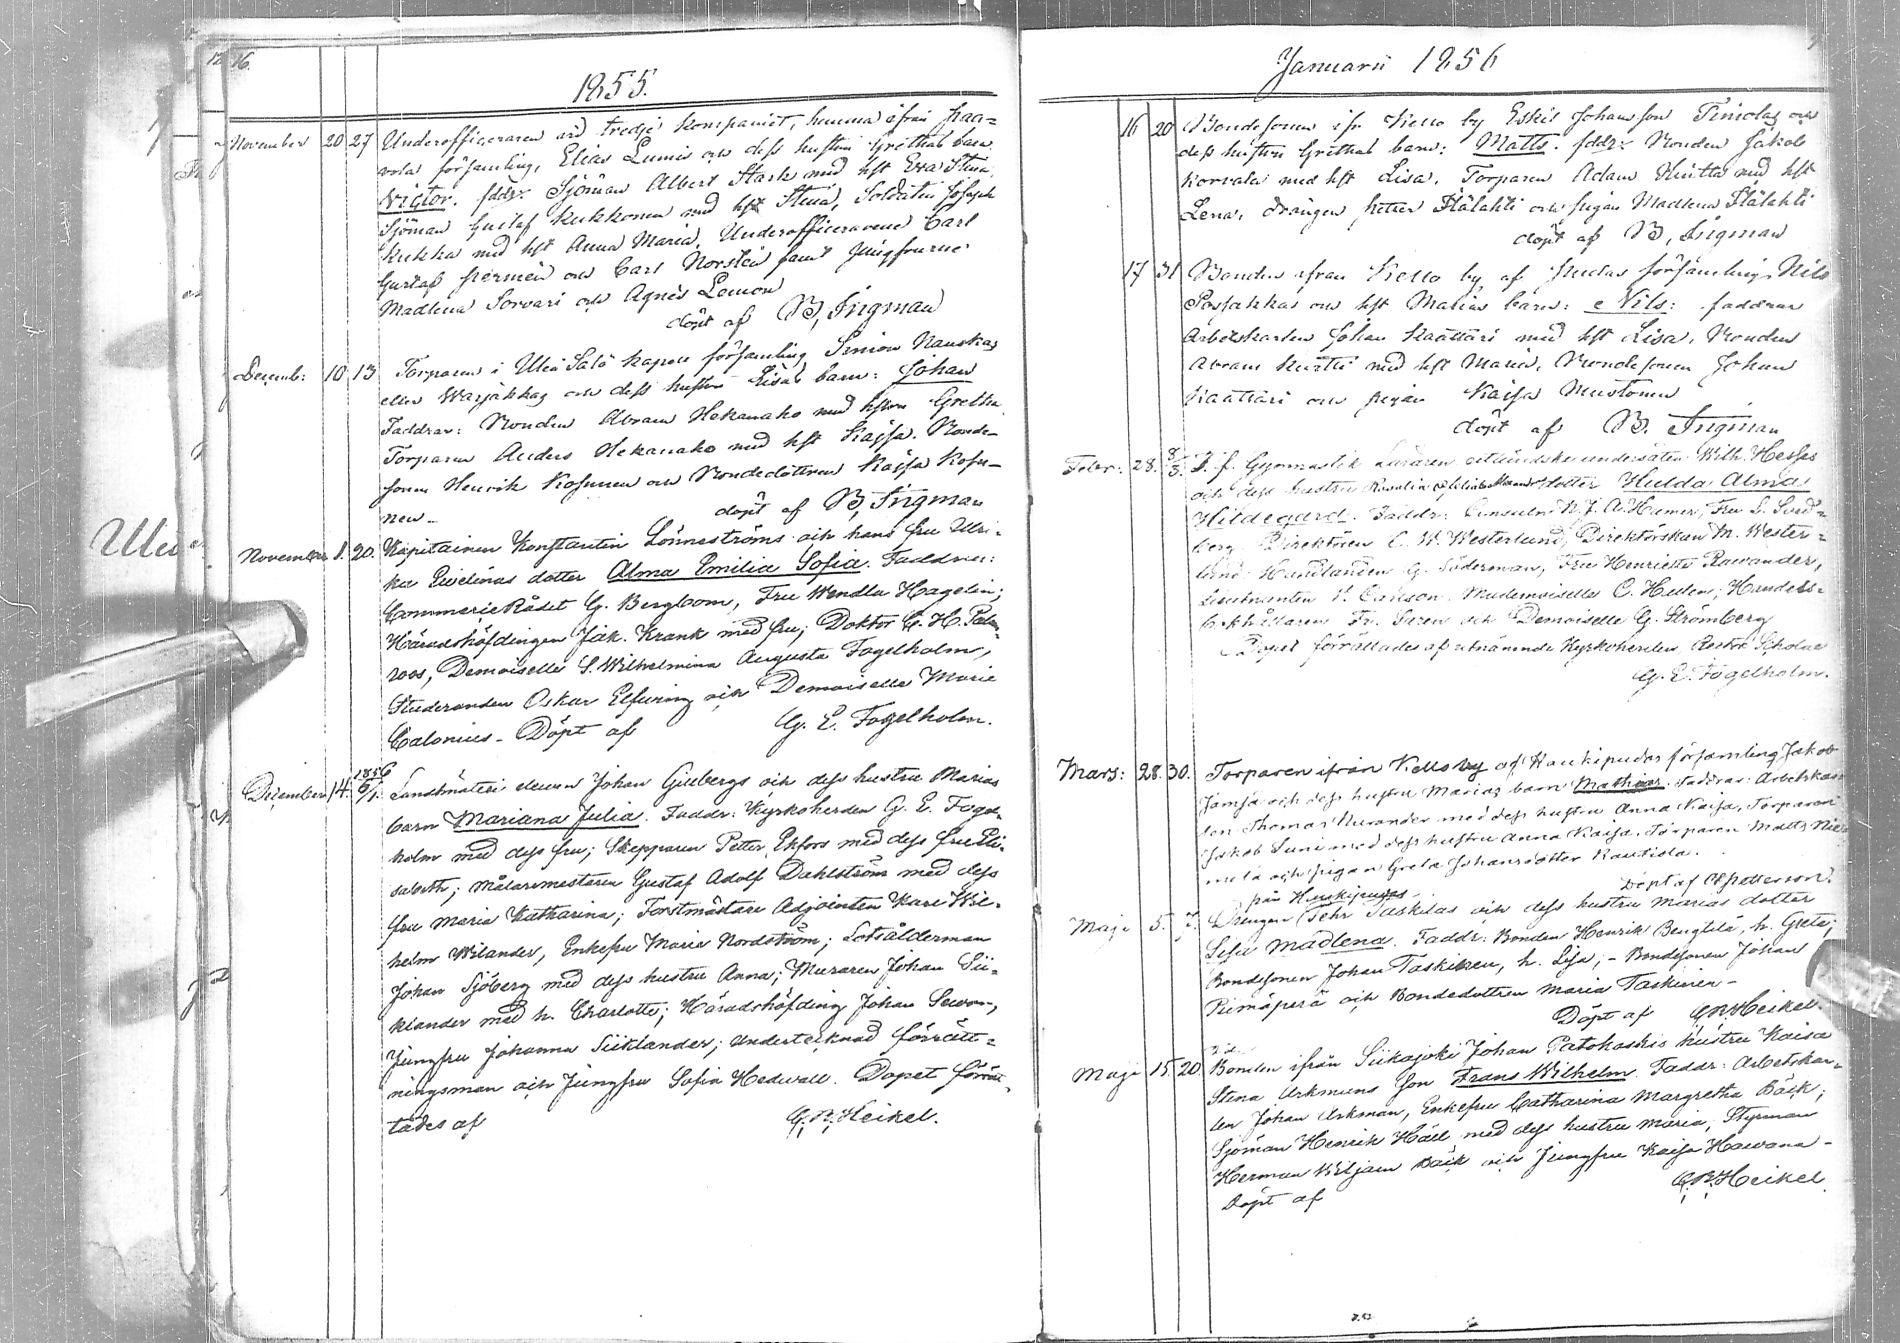 1855.
November 20 27 Underofficeraren vid tredje kompaniet, hemma ifrån
församling, Elias Lumis och dess hustru Grethas barn
Victor. fddr: Sjöman Albert Stark med hst Eva Stina,
Sjöman Gustaf Kukkonen med hst Stina, Soldaten Joseph
Kukka med hst Anna Maria, Underofficerarene Carl
Gustaf och Carl Norstén samt Jungfrurne
Madlena Sorvari och Agnes Lemon
döpt af B. Ingman
Decemb: 10 13 Torparen i Uleå Salo kapell församling Simon Nauska
eller och dess hustru Lisas barn: Johan
Faddrar: Bonden Abram Hekanaho med hstru Gretha
Torparen Anders Hekanaho med hst Kajsa. Bonde-
sonen Henrik Kosunen och Bondedottren Kajsa Kosu-
nen – döpt af B. Ingman
November 1. 20. Kapitainen Konstantin Lönneströms och hans fru Ulri-
ka Evelinas dotter Alma Emilia Sofia. Faddrar:
CommerceRådet G. Bergbom, Fru Wendla Hagelin;
Häradshöfdingen Jak. Krank med fru; Doktor G. H. Palm-
roos, Demoiselle S. Wilhelmina Augusta Fogelholm,
Studeranden Oskar Elfving och Demoiselle Marie
Calonius – Döpt af G. E. Fogelholm.
December 14. 1856 6/1. Landtmäteri eleven Johan Gisebergs och dess hustru Marias
barn Mariana Julia. Faddr: Kyrkoherden G. E. Fogel-
holm med dess fru; Skepparen Petter Ekfors med dess fru Eli-
sabeth; Målaremestaren Gustaf Adolf Dahlström med dess
fru Maria Katharina; Forstmästare Adjointen Karl Wil-
helm Wilander, Enkefru Maria Nordström; Lotsålderman
Johan Sjöberg med dess hustru Anna; Muraren Johan Sii-
klander med h. Charlotte; Häradshöfding Johan Sewon,
Jungfru Johanna Siiklander; undertecknad förrätt-
ningsman och Jungfru Sofia Hedwall. Dopet förrät-
tades af G. R. Heikel.
Januarii 1856
16 20 Bondesonen ifr Kello by Eskil Johansson Timolas och
dess hustru Grethas barn: Matts. fddr: Bonden Jakob
Korvala med hst Lisa, Torparen Adam Huitta med hst
Lena, drängen Petter Hälahti och pigan Madlena Hälahti
döpt af B. Ingman
17 31 Bonden ifrån Kello by, af församling, Nils
och hst Marias barn: Nils: faddrar
Arbetskarlen Johan Kaattari med hst Lisa, Bonden
Abram Huitti med hst Maria, Bondesonen Johan
Kaattari och pigan Kaisa Mustonen
döpt af B. Ingman
Febr: 28. 8/3. Gymnastik Läraren utländske undersåten Wilh. Hesses
och dess hustru Rosalia dotter Hulda Alma
Hildegard. Faddr: Consuln Fru S. Sved-
berg Direktören C. W. Westerlund, Direktörskan M. Wester-
lund Handlanden G. Söderman, Fru Henriette Rowander,
Lieutnanten Carlson. Mademoiselle C. Hellen; Handels-
bokhållaren Fr. och Demoiselle G. Strömberg
Dopet förrättades af utnämnde Kyrkoherden, Rector Scholae
G. E. Fogelholm.
Mars: 28. 30. Torparen ifrån Kello by af Haukipudas församling Jakob
Jämsä och dess hustru Marias barn Mathias. Faddrar: Arbetskar-
len Thomas Nurander med dess hustru Anna Kaisa, Torparen
Jakob Suni med dess hustru Anna Kaisa, Torparen Matts
och pigan Greta Johansdotter Rautiola.
Döpt af Petterson.
Maji 5. 7. från Haukipudas
Drengen Pehr Taskilas och dess hustru Marias dotter
Lisu Madlena. Faddr: Bonden Henrik Bengtilä, h. Greta;
Bondesonen Johan Taskinen, h. Lisa; – Bondesonen Johan
Piimäperä och Bondedottren Maria Taskinen –
Döpt af G. R. Heikel.
Maji 15 20 Bonden ifrån Siikajoki Johan Patokoskis hustru Kaisa
Stina Arkmans son Frans Wilhelm. Faddr: Arbetskar-
len Johan Arkman, Enkefru Catharina Margretha Bäck;
Sjöman Henrik Häll med dess hustru Maria, Styrman
Herman Wiljam Bäck och Jungfru Kaisa Hawana –
Döpt af G. R. Heikel.